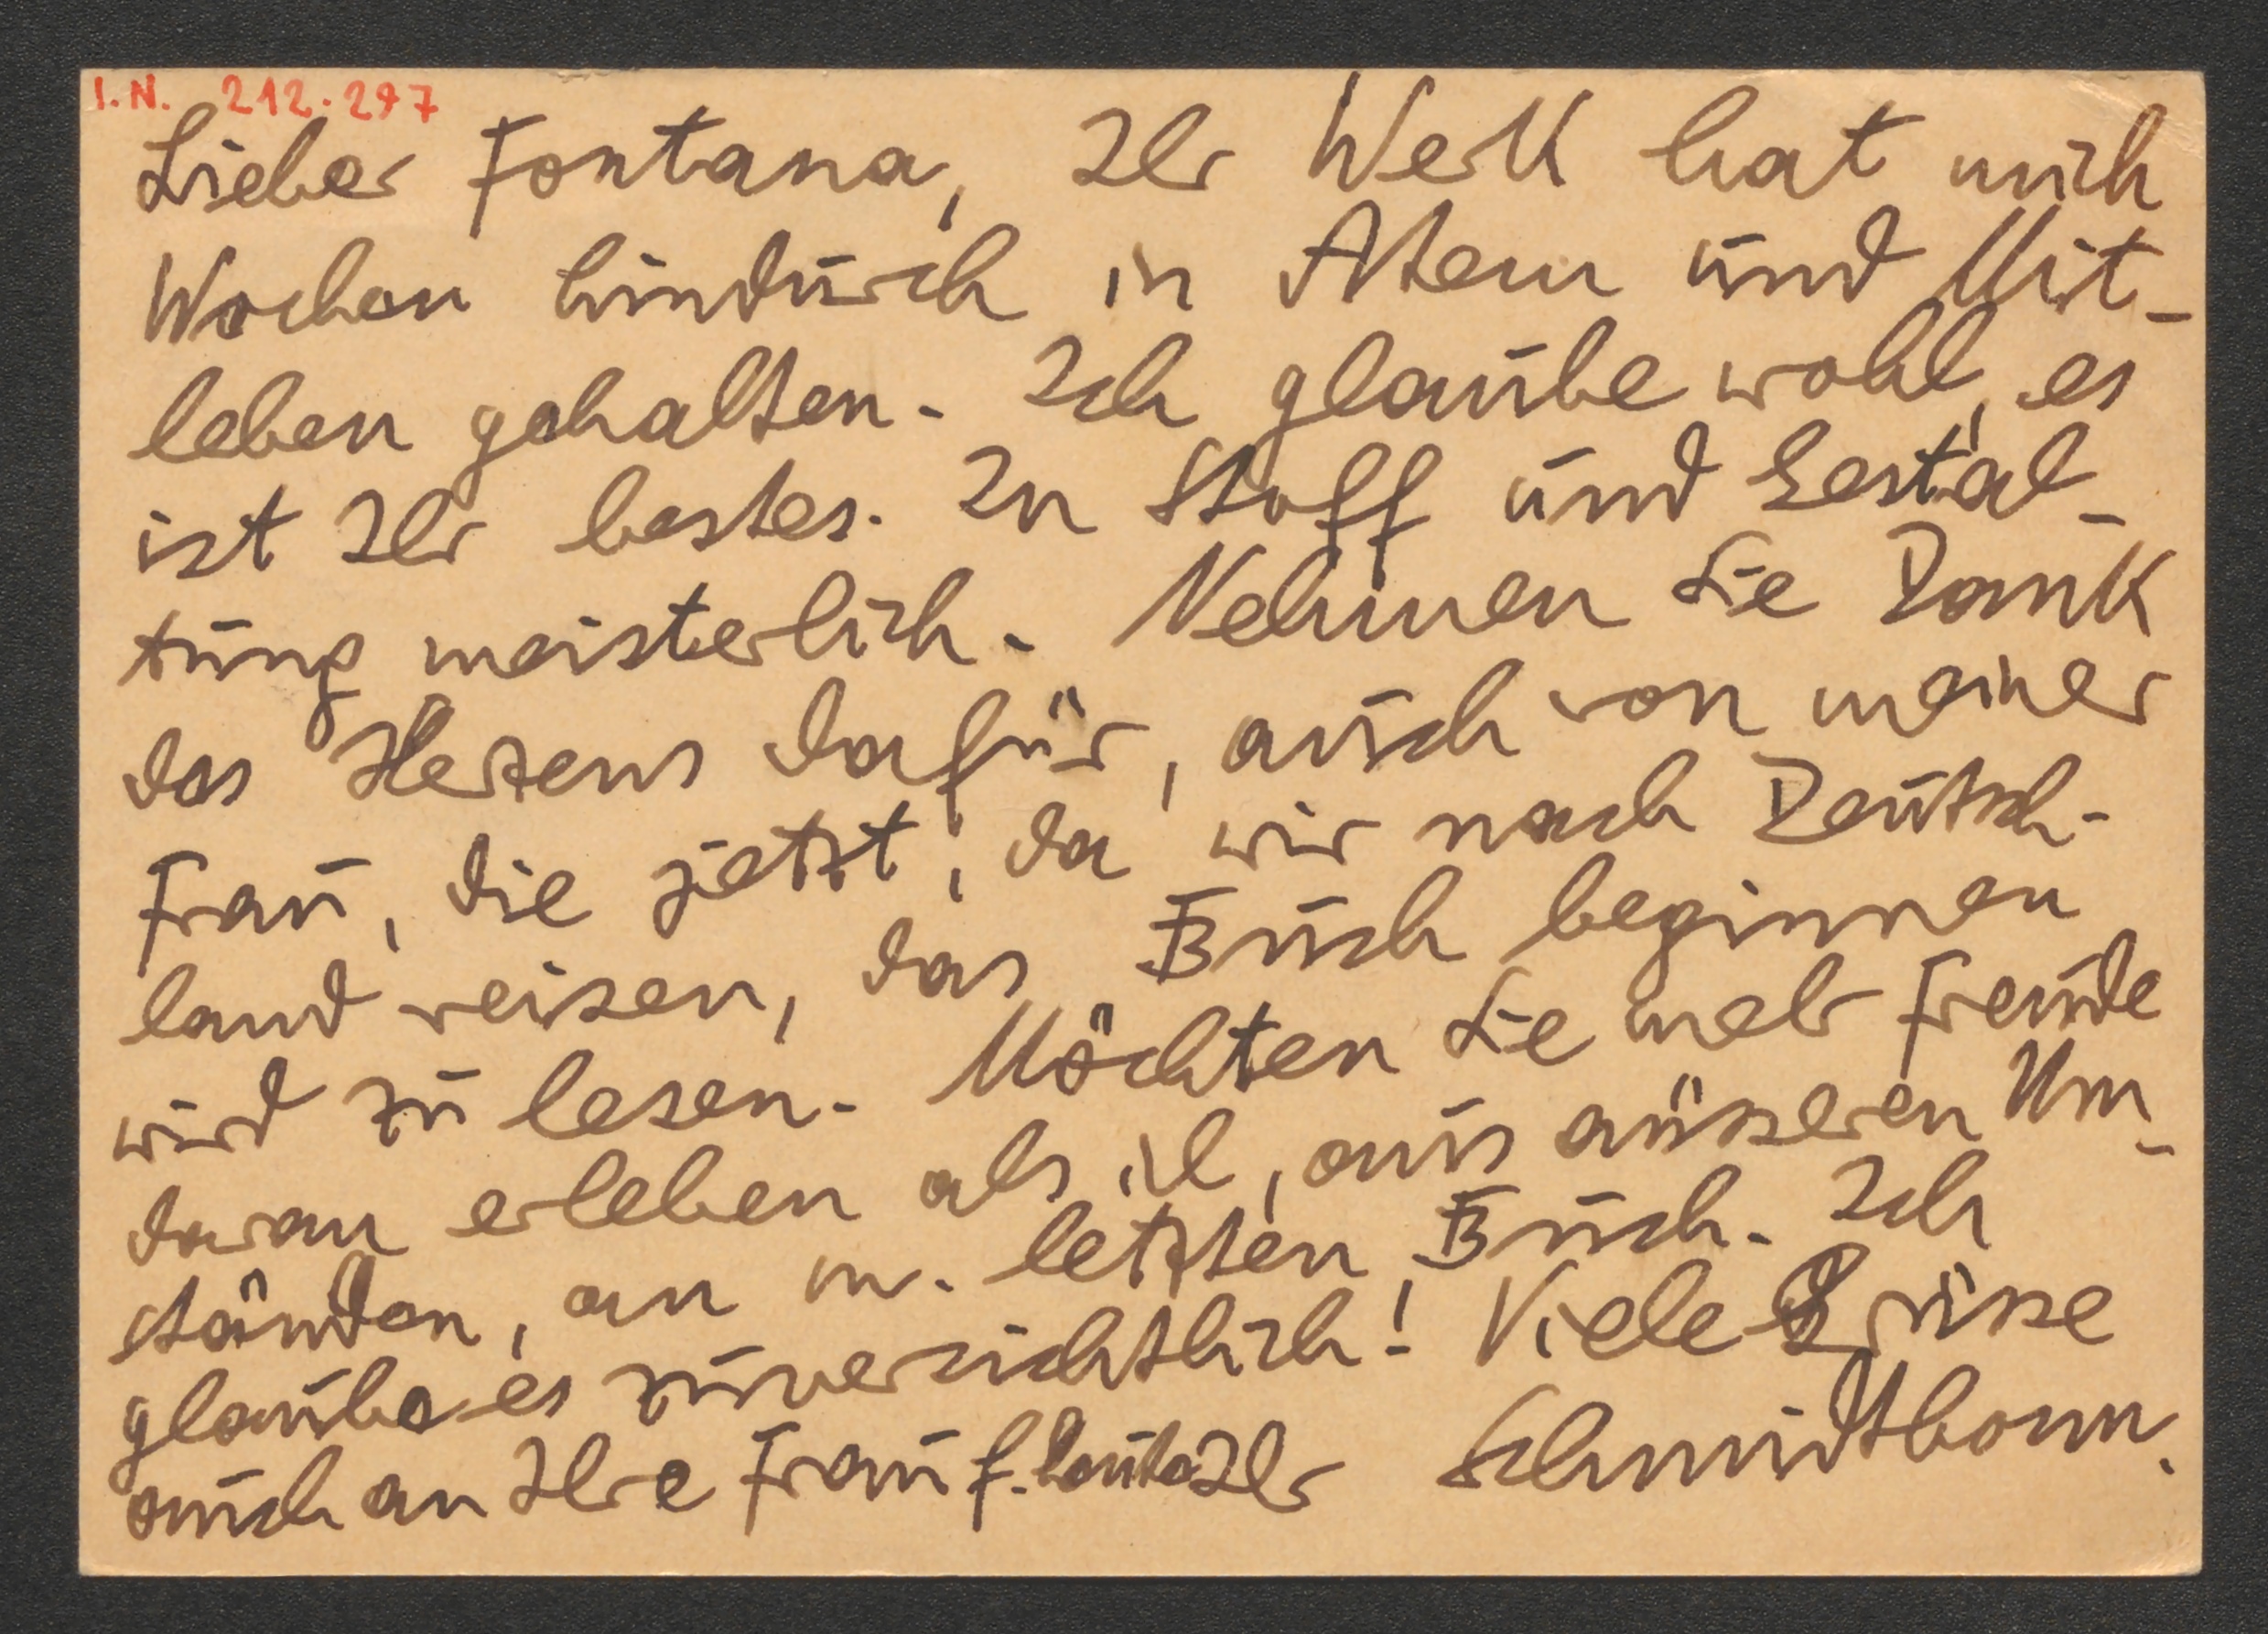 I.N. 212.297
Lieber Fontana, Ihr Werk hat mich
Wochen hindurch in Atem und Mit-
leben gehalten. Ich glaube wohl, es
ist Ihr bestes. In Stoff und Gestal-
tung meisterlich. Nehmen Sie Dank
des Herzens dafür, auch von meiner
Frau, die jetzt, da wir nach Deutsch-
land reisen, das Buch beginnen
wird zu lesen. Möchten Sie mehr Freude
daran erleben als ich, aus äusseren Um-
ständen, an m. letzten Buch. Ich
glaube es zuversichtlich! Viele Grüsse
auch an Ihre Frau f. heute Ihr Schmidtbonn.